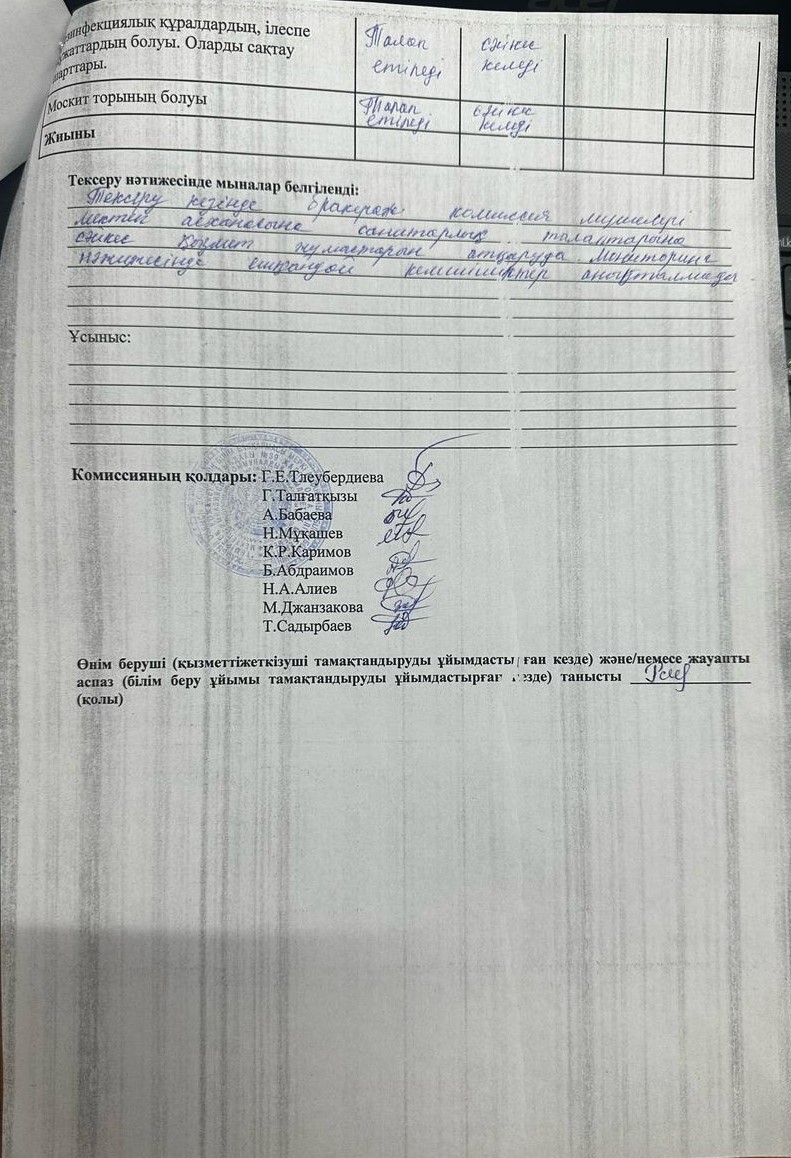 зинфекциялық құралдардың, ілеспе
жаттардың болуы. Оларды сақтау
шарттары.
Талап етіледі
сәйкес келеді
Москит торының болуы
Талап етіледі
сәйкес келеді
Жиыны
Тексеру нәтижесінде мыналар белгіленді:
Тексеру кезінде бракераж комиссия мүшелері
мектеп асханасына санитарлық талаптарына
сәйкес қызмет жұмыстарын атқаруда. Мониторинг
нәтижесінде ешқандай кемшіліктер анықталмады
Ұсыныс:
Комиссияның қолдары: Г.Е.Тлеубердиева
Г.Талғатқызы
А.Бабаева
Н.Мұқашев
К.Р.Каримов
Б.Абдраимов
Н.А.Алиев
М.Джанзакова
Т.Садырбаев
Өнім беруші (қызметтіжеткізуші тамақтандыруды ұйымдасты ған кезде) және/немесе жауапты
аспаз (білім беру ұйымы тамақтандыруды ұйымдастырға кезде) танысты
(қолы)